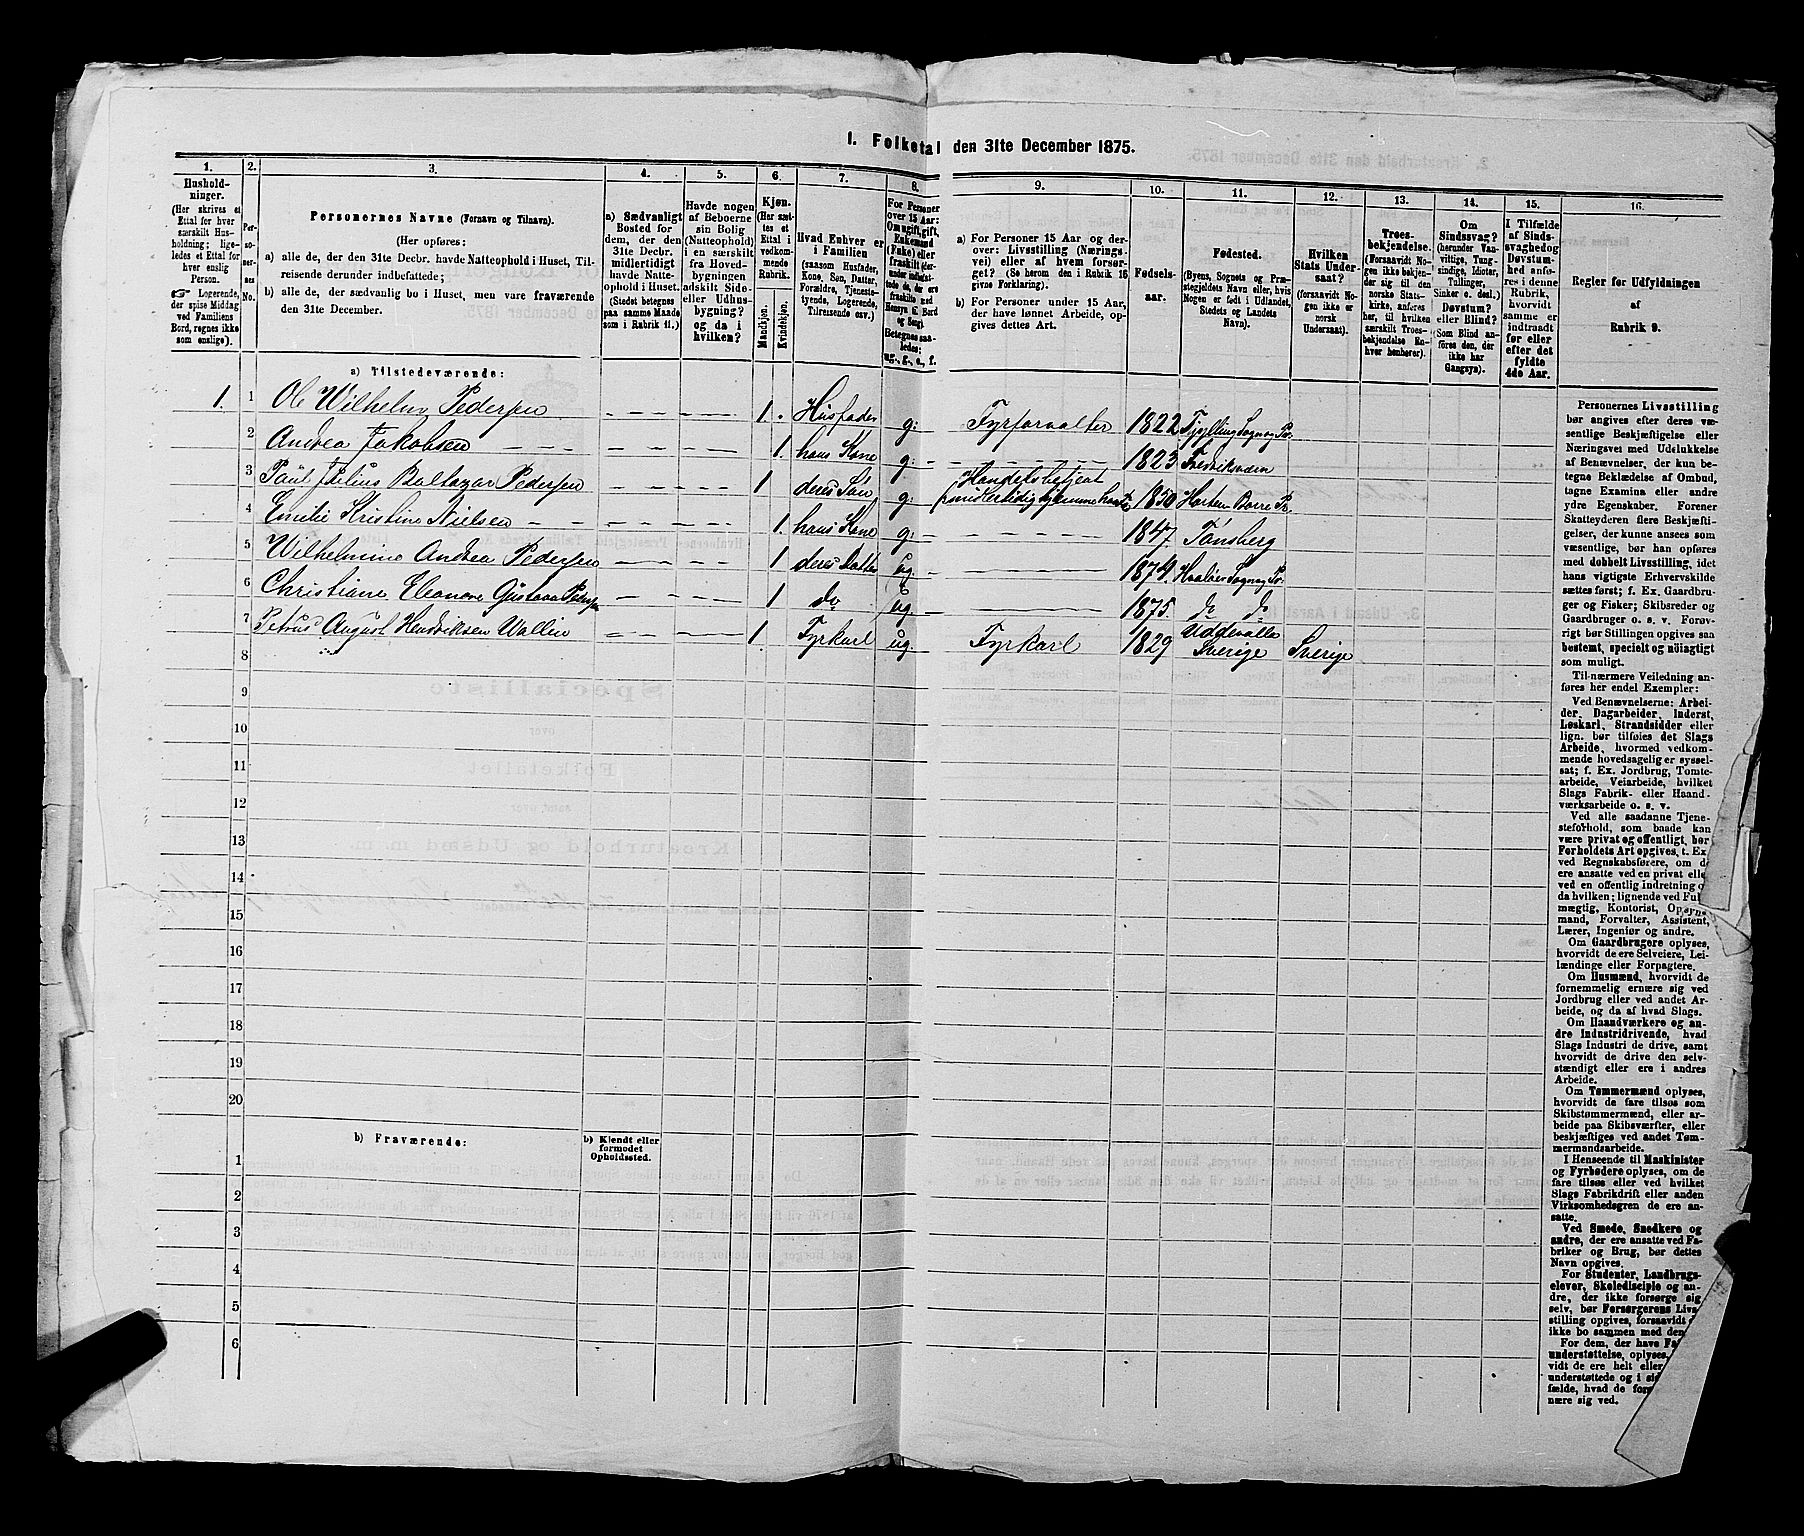 I. Folketal den 31te December 1875.
1. 2. 3. 4. 5. 6. 7. 8. 9. 10. 11. 12. 13. 14. 15. 16.
Husholdninger.
(Her skrives et
Ettal for hver
særskilt Husholdning;
ligeledes et Ettal for
hver enslig
Person.
☞ Logerende,
der spise Middag
ved Familiens
Bord, regnes ikke
som enslige).
Personernes No.
Personernes Navne (Fornavn og Tilnavn).
(Her opføres:
a) alle de, der den 31te Decbr. havde Natteophold i Huset, Tilreisende
derunder indbefattede;
b) alle de, der sædvanlig bo i Huset, men vare fraværende
den 31te December.
a) Sædvanligt
Bosted for
dem, der den
31te Decbr.
midlertidigt
havde Natteophold
i Huset.
(Stedet betegnes
paa samme Maade
som i Rubrik 11.)
Havde nogen
af Beboerne
sin Bolig
(Natteophold)
i en særskilt
fra Hovedbygningen
adskilt Side-
eller Udhusbygning?
og da i
hvilken?
Kjøn.
(Her sættes
et
Ettal i
vedkommende
Rubrik.
Mandkjøn.
Kvindekjøn.
Hvad Enhver er
i Familien
(saasom Husfader,
Kone, Søn, Datter,
Forældre, Tjenestetyende,
Logerende,
Tilreisende osv.)
For Personer
over 15 Aar:
Om ugift, gift,
Enkemand
(Enke) eller
fraskilt
ug., g., e., f.
a) For Personer 15 Aar og derover:
Livsstilling (Næringsvei)
eller af hvem forsørget?
(Se herom den i Rubrik 16
givne Forklaring).
b) For Personer under 15 Aar,
der have lønnet Arbeide, opgives
dettes Art.
Fødselsaar.
Fødested.
(Byens, Sognets og Præstegjeldets
Navn eller, hvis
Nogen er født i Udlandet,
Stedets og Landets
Navn).
Hvilken
Stats Undersaat?
(forsaavidt Nogen
ikke er
norsk
Undersaat).
Troesbekjendelse.
(Forsaavidt Nogen
ikke bekjender
sig til den
norske Statskirke,
anføres
her, til hvilken
særskilt Troesbekjendelse
Enhver
henhører).
Om
Sindssvag?
(herunder Vanvittige,
Tungsindige,
Idioter,
Tullinger,
Sinker o. desl.)
Døvstum?
eller Blind?
(Som Blind anføres
den, der
ikke har
Gangsyn).
I Tilfælde
af Sindssvaghed
og
Døvstumhed
anføres
i denne
Rubrik,
hvorvidt
samme er
indtraadt
før eller
efter det
fyldte
4de Aar.
Regler før Udfyldningen
af
Rubrik 9.
a) Tilstedeværende:
1. 1 Ole Wilhelm Pedersen 1. Husfader g: Fyrforvalter 1822 Tjølling Sogn og Pr.
2 Andrea Jakobsen 1. hans Kone g: 1823 Fredriksværn
3 Paul Julius Baltazar Pedersen 1 deres Søn g: Handelsbetjent midlertidig hjemmehørende 1850 Horten Borre Pr.
4 Emilie Kristine Nielsen 1. hans Kone g: 1847. Tønsberg
5 Wilhelmine Andrea Pedersen 1 deres Datter ug. 1874. Hvaløer Sogn og Pr.
6 Christiane Eleonore Gustava Pedersen 1 do ug. 1875. do do
7 Petrus August Hendriksen Wallin 1. Fyrkarl ug. Fyrkarl 1829 Uddevalla Sverige Sverige
8
9
10
11
12
13
14
15
16
17
18
19
20
b) Fraværende:
b) Kjendt eller
formodet
Opholdssted.
1
2
3
4
5
6
Personernes Livsstilling
bør angives efter deres væsentlige
Beskjæftigelse eller
Næringsvei med Udelukkelse
af Benævnelser, der kun betegne
Beklædelse af Ombud,
tagne Examina eller andre
ydre Egenskaber. Forener
Skatteyderen flere Beskjæftigelser,
der kunne ansees som
væsentlige, bør han opføres
med dobbelt Livsstilling, idet
hans vigtigste Erhvervskilde
sættes først; f. Ex. Gaardbruger
og Fisker; Skibsreder og
Gaardbruger o. s. v. Forøvrigt
bør Stillingen opgives saa
bestemt, specielt og nöiagtigt
som muligt.
Til nærmere Veiledning anføres
her endel Exempler:
Ved Benævnelserne: Arbeider,
Dagarbeider, Inderst,
Løskarl, Strandsidder eller
lign. bør tilføies det Slags
Arbeide, hvormed vedkommende
hovedsagelig er sysselsat;
f. Ex. Jordbrug, Tomtearbeide,
Veiarbeide, hvilket
Slags Fabrik- eller Haandværksarbeide
o. s. v.
Ved alle saadanne Tjenesteforhold,
som baade kan
være privat og offentligt, bør
Forholdets Art opgives, t. Ex
ved Regnskabsførere, om de
ere ansatte ved en privat elle
ved en offentlig Indretning o
da hvilken; lignende ved Fuldmægtig,
Kontorist, Opsynsmand,
Forvalter, Assistent,
Lærer, Ingeniør og andre.
Om Gaardbrugere oplyses,
hvorvidt de ere Selveiere, Leilændinge
eller Forpagtere.
Om Husmænd, hvorvidt de
fornemmelig ernære sig ved
Jordbrug eller ved andet Arbeide,
og da af hvad Slags.
Om Haandværkere og andre
Industridrivende, hvad
Slags Industri de drive, samt
hvorvidt de drive den selvstændigt
eller ere i andres
Arbeide.
Om Tømmermænd oplyses,
hvorvidt de fare tilsøs som
Skibstømmermænd, eller arbeide
paa Skibsværfter, eller
beskjæftiges ved andet Tømmermandsarbeide.
I Henseende til Maskinister
og Fyrbødere oplyses, om de
fare tilsøs eller ved hvilket
Slags Fabrikdrift eller anden
Virksomhedsgren de ere ansatte.
Ved Smede, Snedkere og
andre, der ere ansatte ved Fabriker
og Brug, bør dettes
Navn opgives.
For Studenter, Landbrugselever,
Skoledisciple og andre,
der ikke forsørge sig
selv, bør Forsørgerens Livsstilling
opgives, forsaavidt d
ikke bo sammen med den
For dem, der have Fa
understøttelse, oplyses,
vidt de ere helt eller
understøttede og i sid
fælde, hvad de for
nære sig ved.